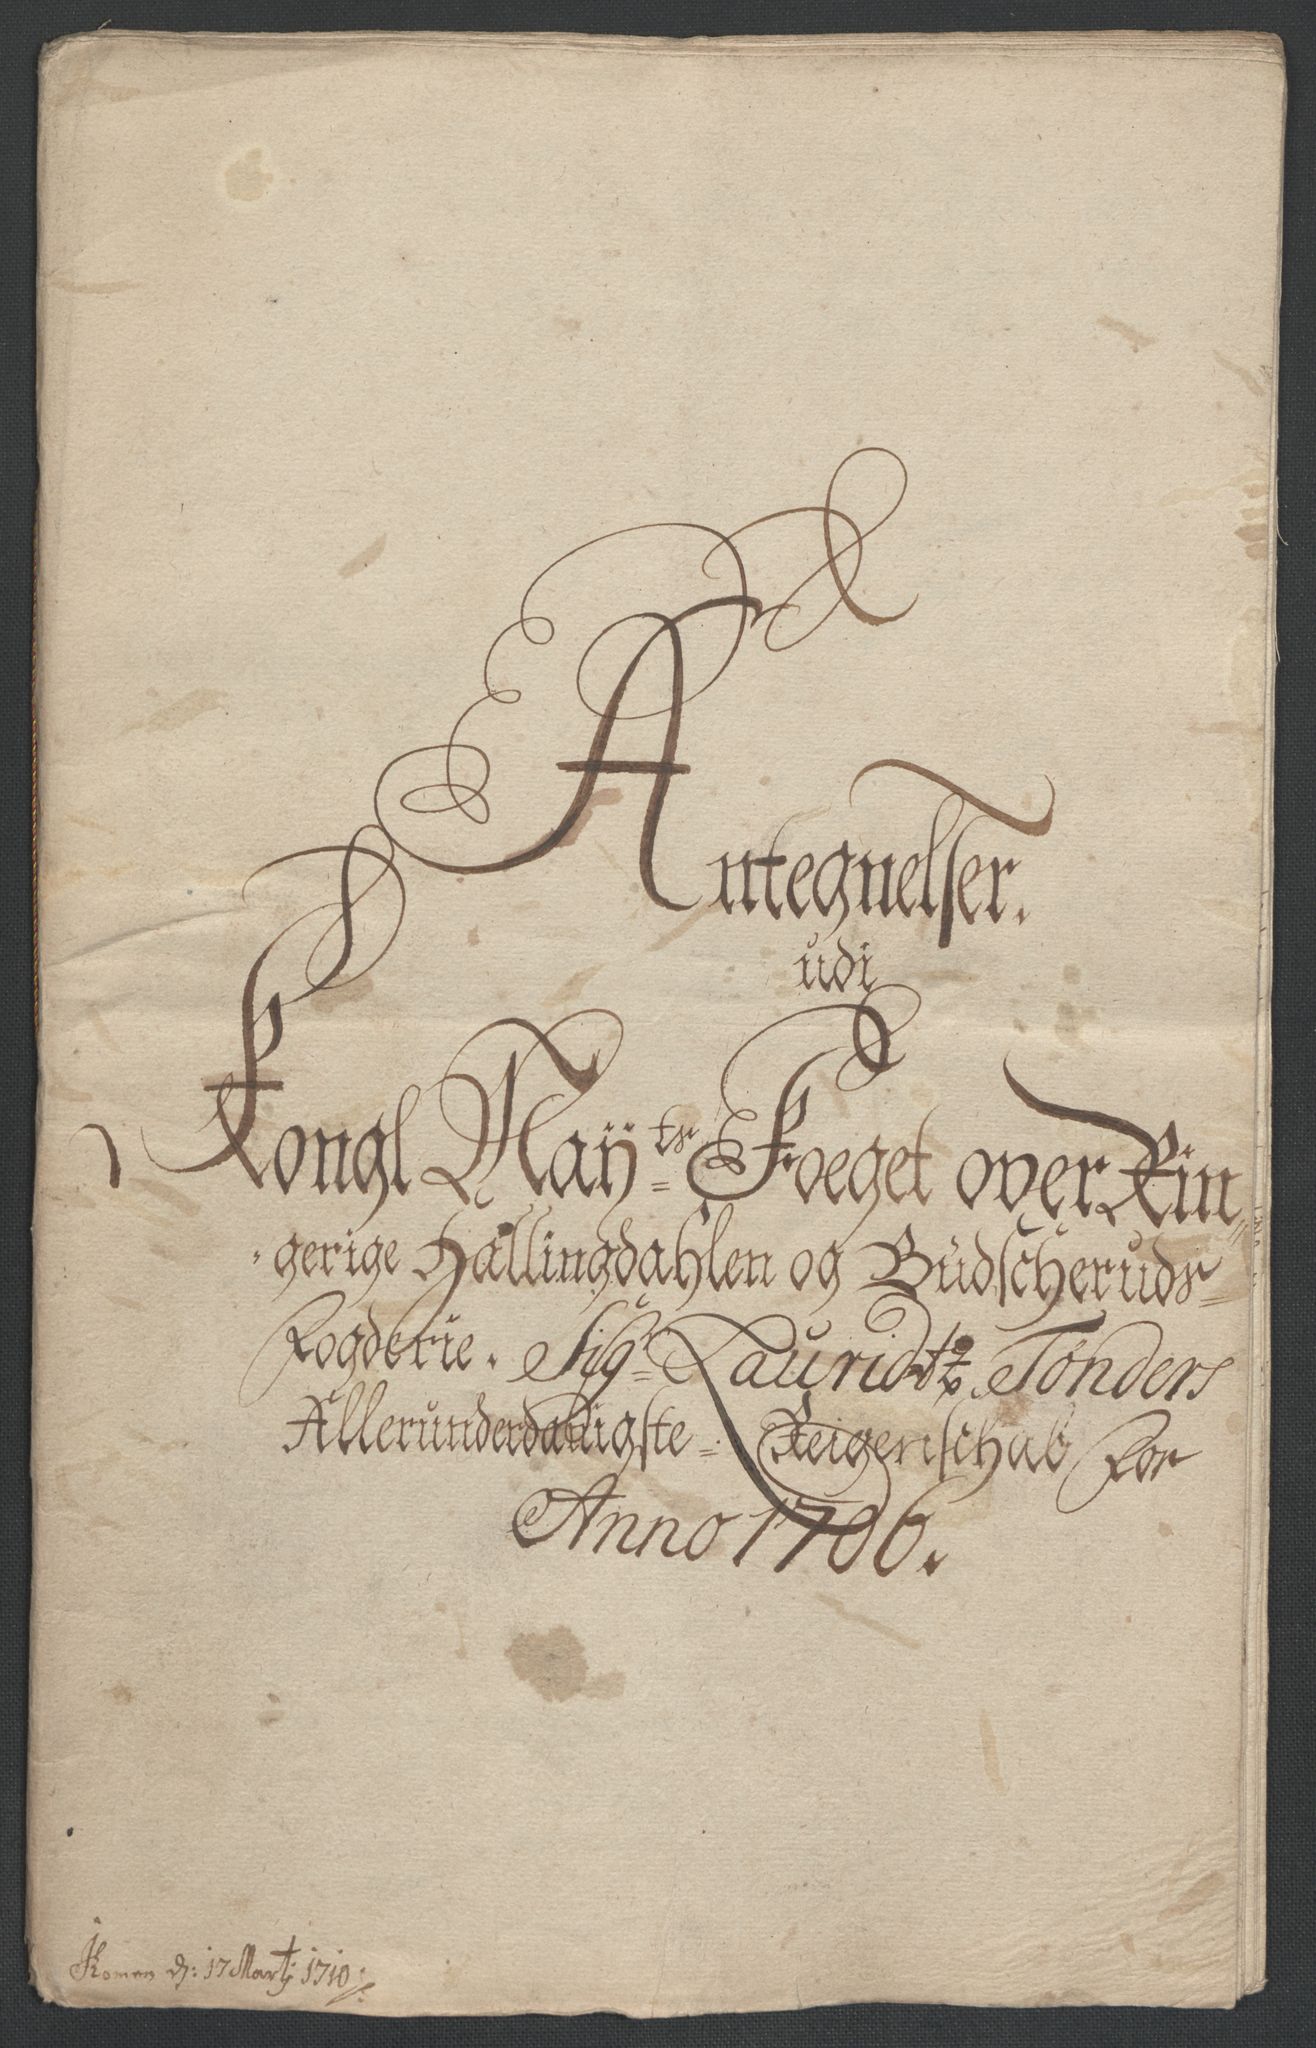 Antegnelser.
udi
Kongl Maÿ=ts Foeget over Rin=
gerige Hallingdahlen og Budscheruds=
Fogderie. Sigr Lauridtz Tønders
Allerunderdanigste Reigenschab for
Anno 1706.
Ikomen d: 17 Martj 1710